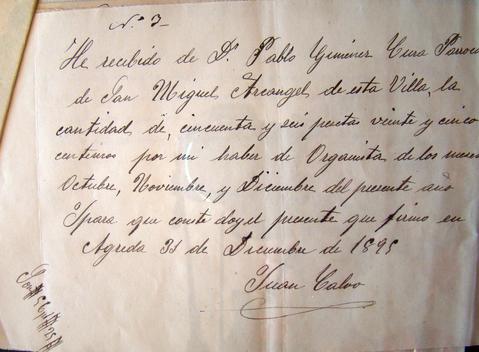 N.º 3
He recibido de Dn. Pablo Giménez Cura Párroco
de San Miguel Arcangel de esta Villa, la
cantidad de, cincuenta y seis pesetas veinte y cinco
centimos por mi haber de Organista de los meses
Octubre, Noviembre, y Diciembre del presente año
Ypara que conste doyel presente que firmo en
Agreda 31 de Diciembre de 1895
Juan Calvo